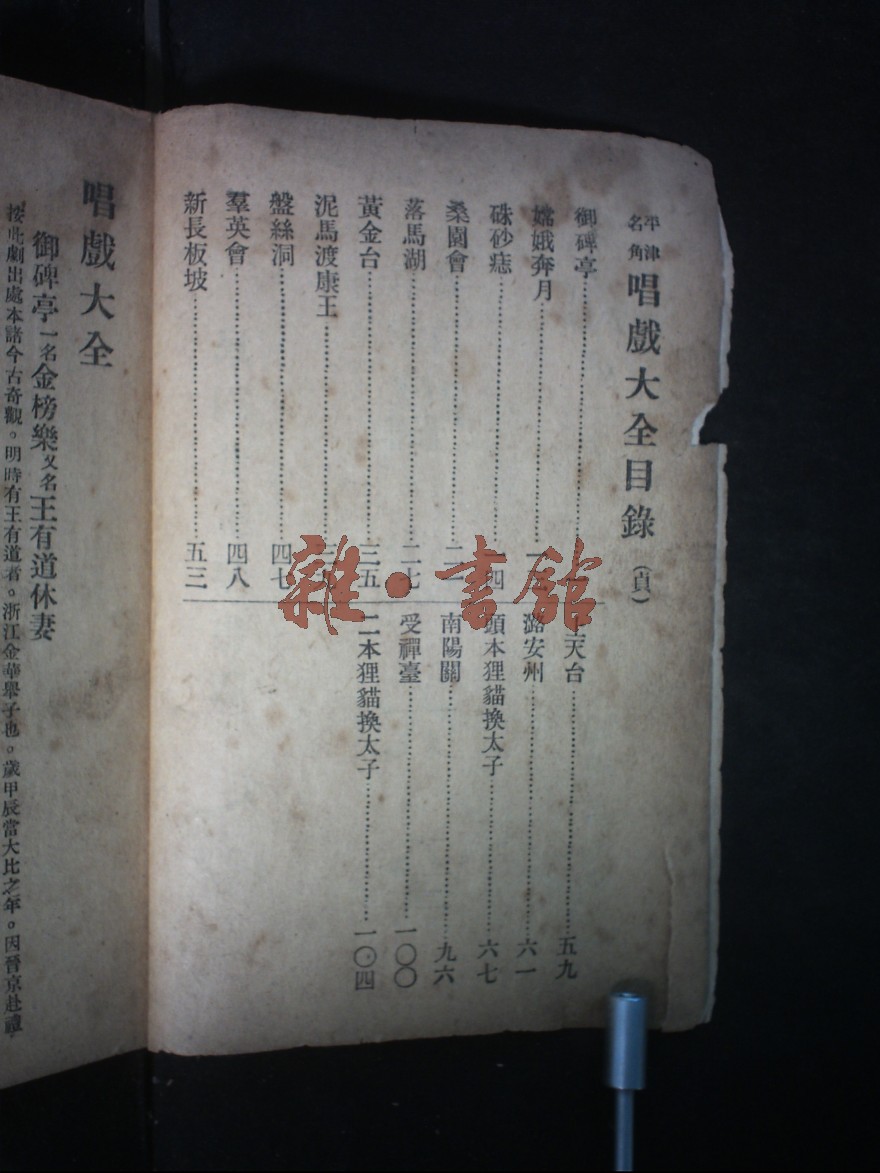 平津名角唱戲大全目錄（貞）
御碑亭
嫦娥奔月
硃砂痣 一四
桑園會
落馬湖 二七
黃金台 三五
泥馬渡康王
盤絲洞 四七
羣英會 四八
新長板坡 五三
上天台 五九
潞安州 六一
頭本狸貓換太子 六七
南陽關 九六
受禪臺 一〇〇
二本狸貓換太子 一〇四
唱戲大全
御碑亭一名金榜樂又名王有道休妻
按此劇出處本諸今古奇觀。明時有王有道者。浙江金華舉子也。歲甲辰當大比之年。因晉京赴禮
雜·書館